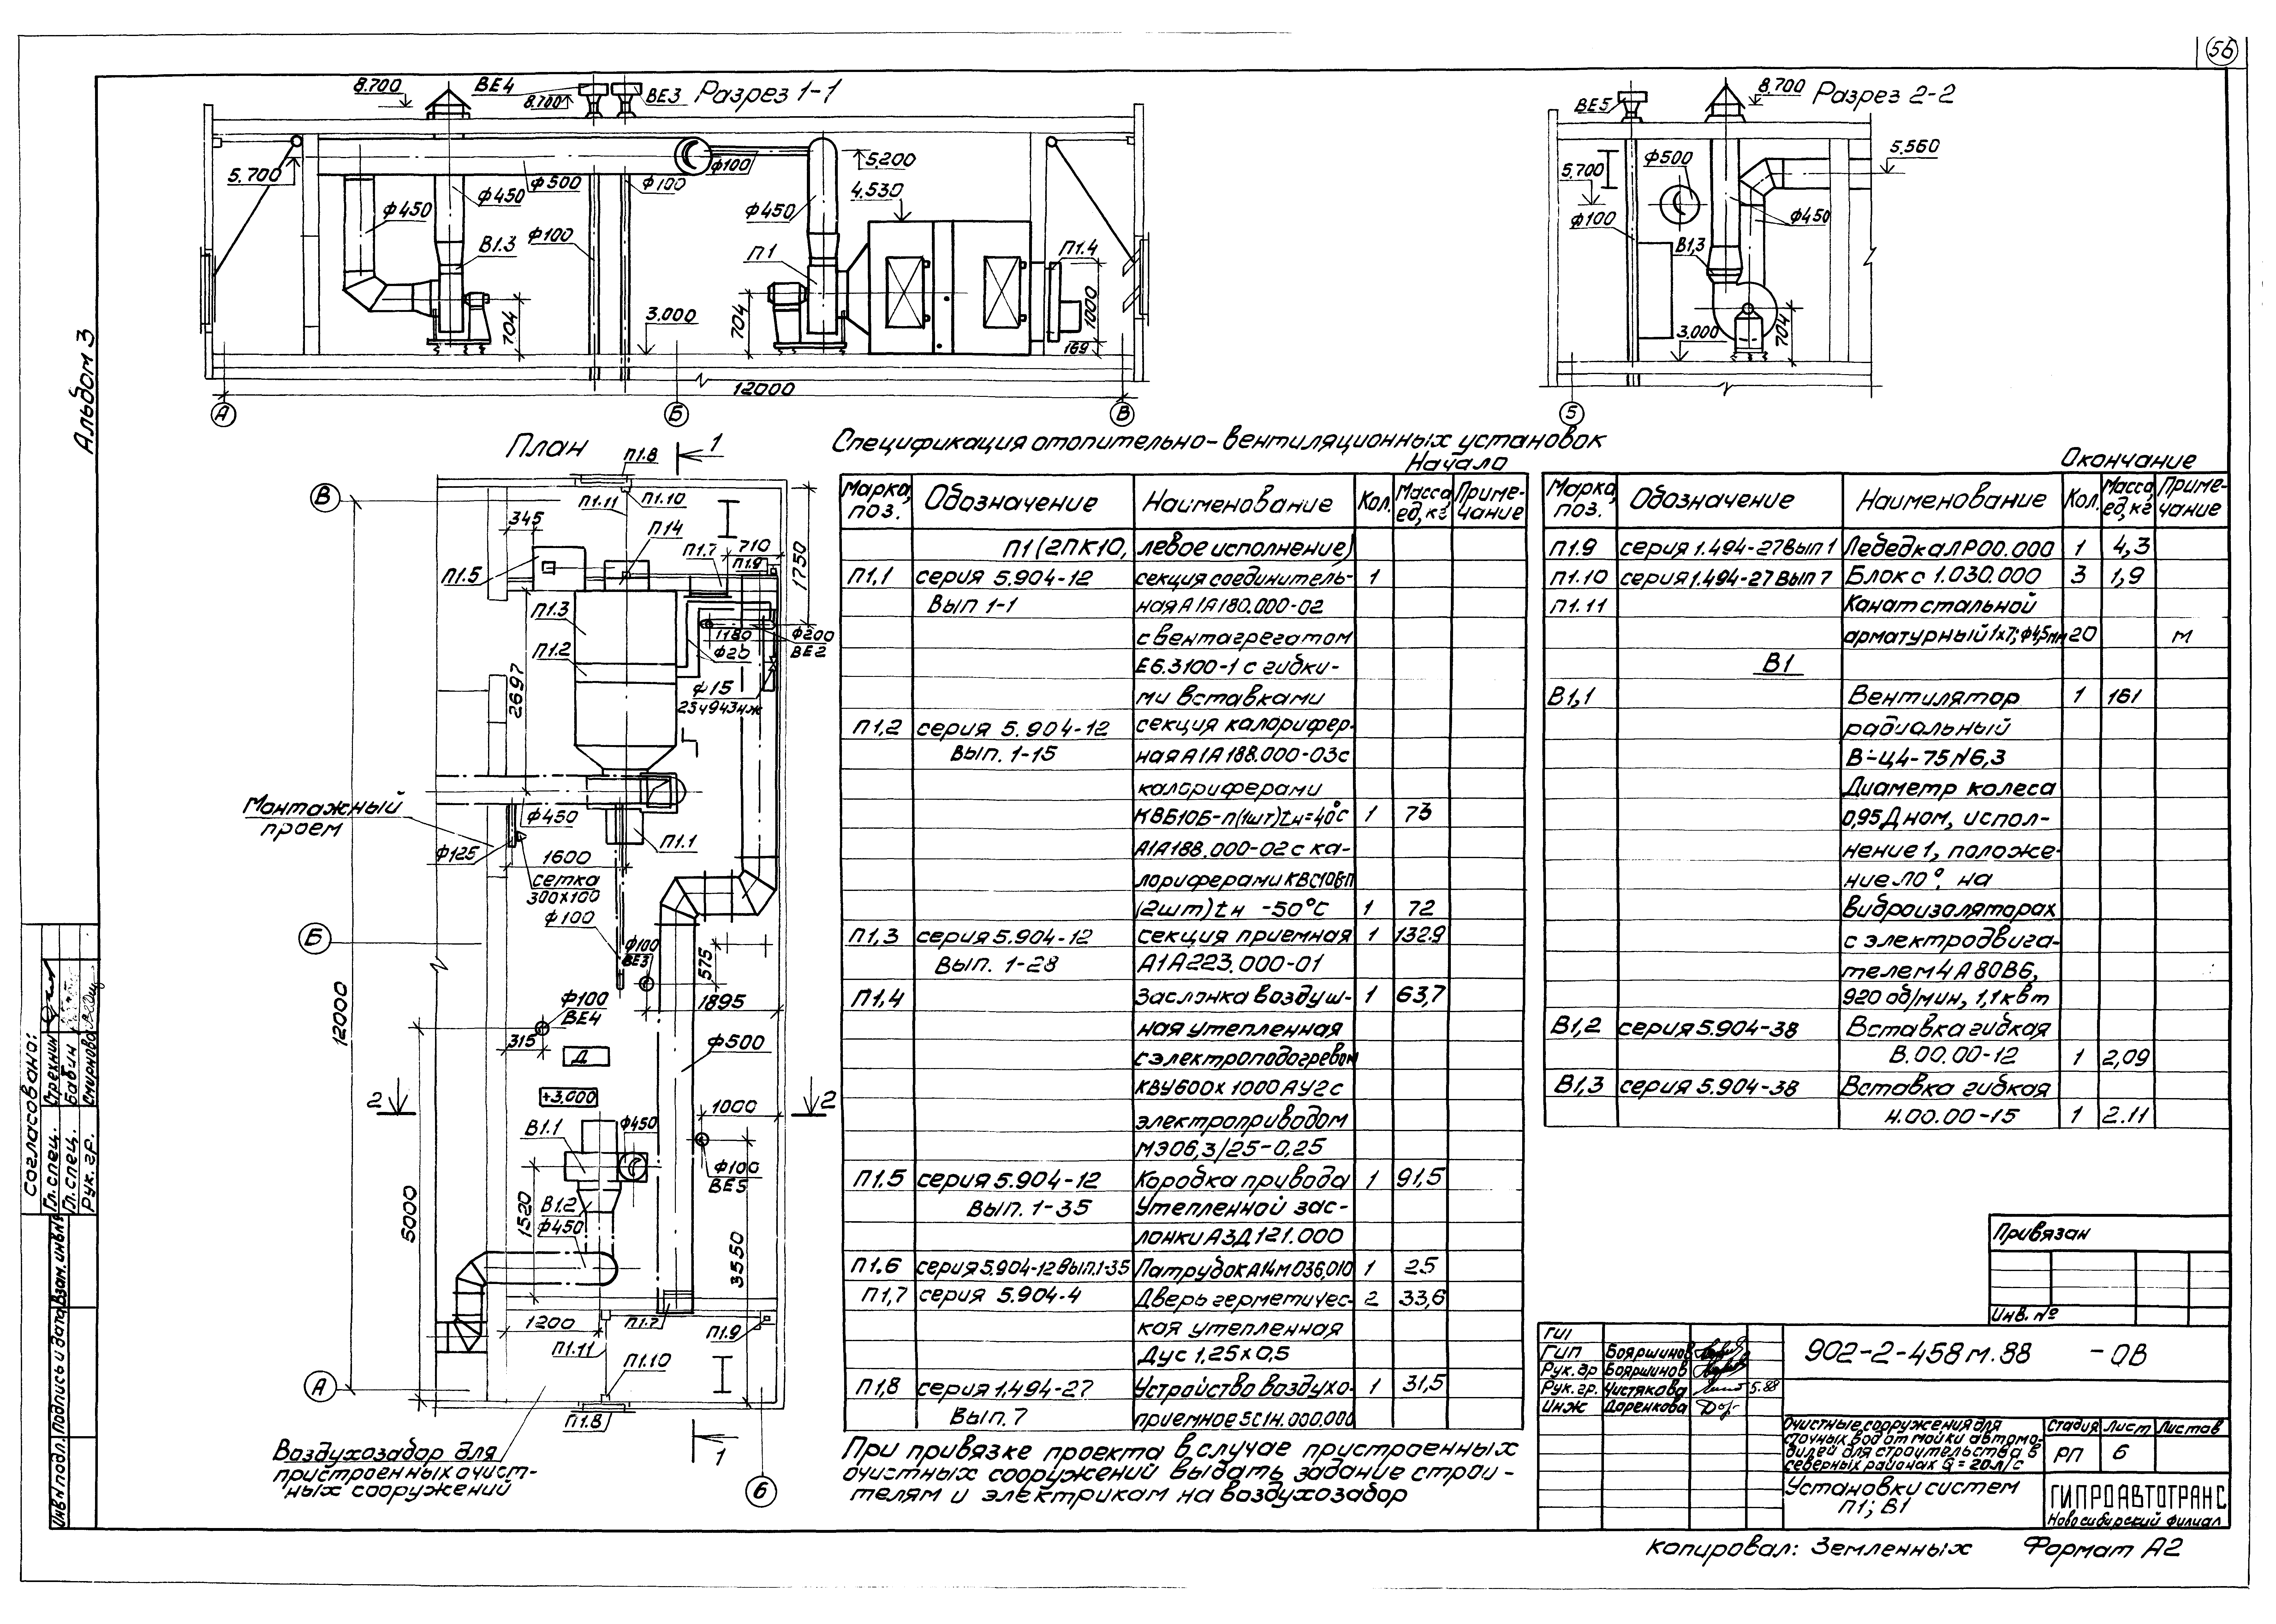 56
Альбом 3
Разрез 1-1
8.700
ВЕ4
8.700
ВЕ3
5.700
ф450
ф450
ф500
ф100
ф100
В1.3
ф100
704
3.000
5.200
4.530
ф450
П1
П1.4
704
1000
169
12000
А
Б
В
Разрез 2-2
ВЕ5
8.700
5.560
5.700
ф500
ф100
ф450
В1,3
3.000
704
5
План
1
П1.8
П1.10
П1.11
В
345
П14
П1.7
710
П1.9
1750
П1.5
П1.3
П1.2
1180
ф200
ВЕ2
ф20
ф15
25ч943нж
2697
Монтажный
проем
ф450
ф125
П1.1
1600
сетка
300х100
ф100
Б
ф100
ВЕ3
575
ф100
ВЕ4
1895
12000
315
Д
ф500
+3,000
2
2
1000
В1.1
ф450
ф100
ВЕ5
5000
1520
В1.2
ф450
3550
1200
П1.7
П1.9
П1.11
П1.10
А
П1.8
1
6
Воздухозабор для
пристроенных очист-
ных сооружений
Спецификация отопительно-вентиляционных установок
Начало
Марка, поз. Обозначение Наименование Кол. Масса ед, кг Приме-чание
П1 (2ПК10, левое исполнение)
П1,1 серия 5.904-12 секция соединитель- 1
Вып 1-1 ная А1А180.000-02
с вентагрегатом
Е6.3100-1 с гибки-
ми вставками
П1,2 серия 5.904-12 секция калорифер-
Вып. 1-15 ная А1А188.000-03с
калориферами
КВБ10Б-п(1шт)tн=40°с 1 73
А1А188.000-02 с ка-
лориферами КВС10Б-П
(2шт)tн -50°С 1 72
П1,3 серия 5.904-12 секция приемная 1 132.9
Вып. 1-28 А1А223.000-01
П1,4 Заслонка воздуш- 1 63,7
ная утепленная
с электроподогревом
КВУ600х1000АУ2с
электроприводом
МЭ06,3/25-0,25
П1.5 серия 5.904-12 Коробка привода 1 91,5
Вып. 1-35 Утепленной зас-
лонки АЗД121.000
П1.6 серия 5.904-12 Вып.1-35 Патрубок А14М036,010 1 25
П1,7 серия 5.904-4 Дверь герметичес- 2 33,6
кая утепленная
Дус 1,25х0,5
П1,8 серия 1.494-27 Устройство воздухо- 1 31,5
Вып. 7 приемное 5С1Н.000.000
Окончание
Марка, поз. Обозначение Наименование Кол. Масса, ед, кг Приме-чание
П1.9 серия 1.494-27 Вып 1 Лебедка ЛР00.000 1 4,3
П1.10 серия 1.494-27 Вып 7 Блок с 1.030.000 3 1,9
П1.11 Канат стальной
арматурный 1х7; ф4,5мм 20 м
В1
В1,1 Вентилятор 1 161
радиальный
В-Ц4-75 N6,3
Диаметр колеса
0,95 Дном, испол-
нение 1, положе-
ние Л0°, на
виброизоляторах
с электродвига-
телем 4А80В6,
920 об/мин, 1,1 квт
В1,2 серия 5.904-38 Вставка гибкая
В.00.00-12 1 2,09
В1,3 серия 5.904-38 Вставка гибкая
Н.00.00-15 1 2.11
При привязке проекта в случае пристроенных
очистных сооружений выдать задание строи-
телям и электрикам на воздухозабор
Согласовано:
Гл. спец. Стрехнин
Гл. спец. Бабин
Рук. гр. Смирнова
Инв N подл. Подпись и дата Взам. инв N
Привязан
Инв. №
ГИП Бояршинов
Рук. гр Бояршинов
Рук. гр. Чистякова 5.88
Инж Даренкова
902-2-458м.88 -ОВ
Очистные сооружения для
сточных вод от мойки автомо-
билей для строительства в
северных районах Q = 20 л/с
Стадия Лист Листов
РП 6
Установки систем
П1; В1
ГИПРОАВТОТРАНС
Новосибирский филиал
Копировал: Земленных Формат А2